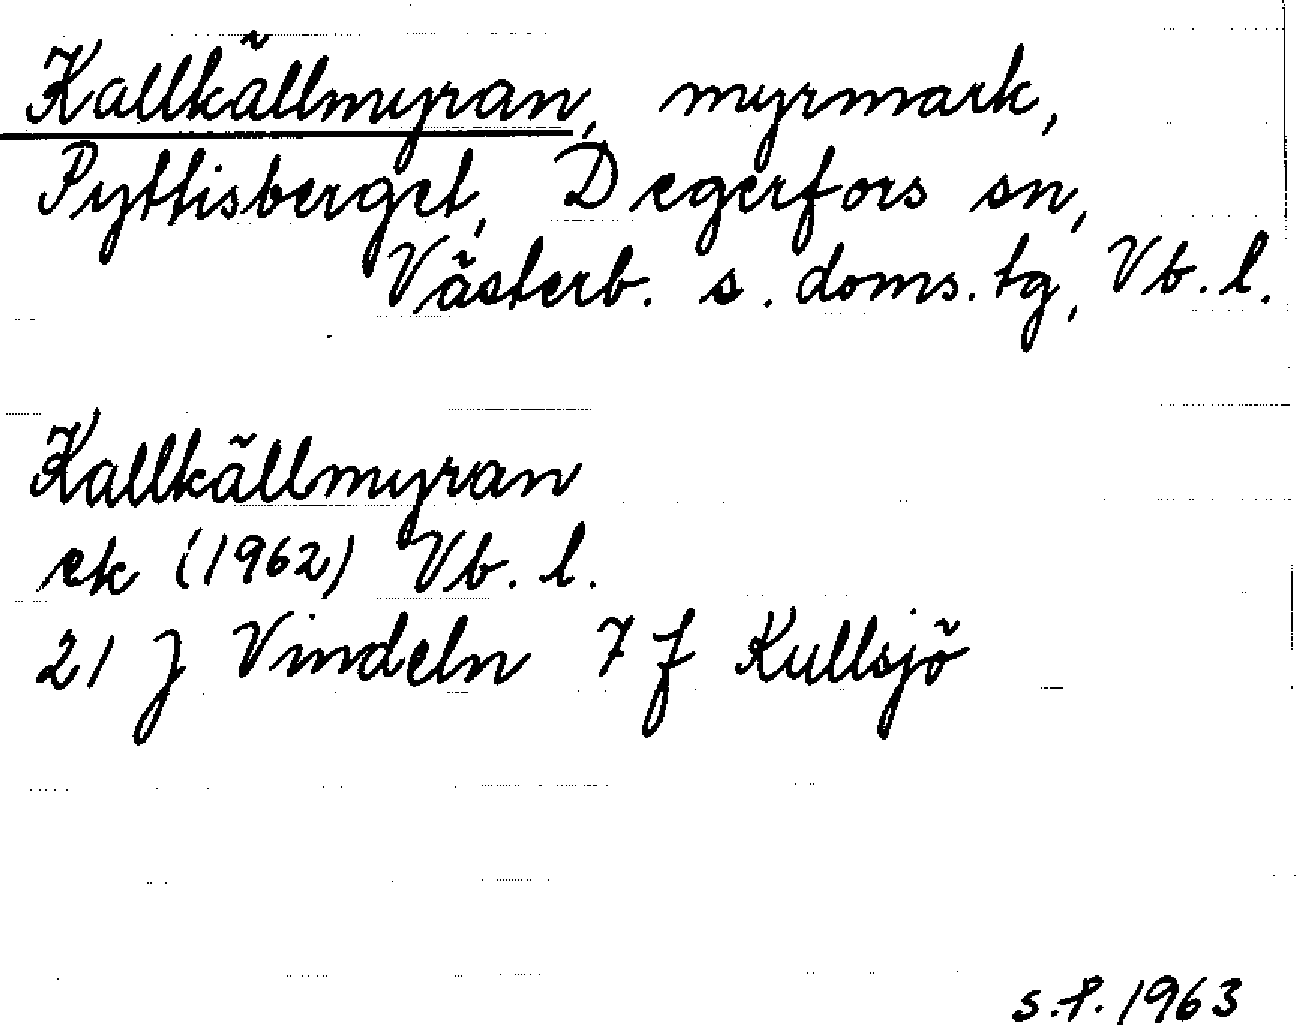 Kallkällmyran, myrmark,
Pyttisberget, Degerfors sn,
Västerb. s. doms. tg, Vb. l.
Kallkällmyran
ek (1962) Vb. l.
21 J Vindeln 7 f Kullsjö
s.P. 1963